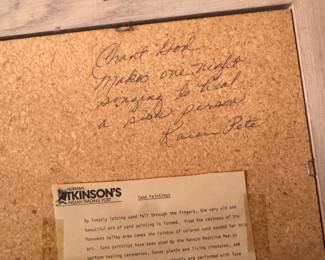 Chant God
Makes one night
singing to heal
a sick person
Karen Pete
HERMAN
ATKINSON'S
INDIAN TRADING POST
Sand Paintings
By loosely letting sand fall through the fingers, the very old and
beautiful art of sand painting is formed. From the vastness of the
Monument Valley area comes the rainbow of colored sand needed for this
art. Sand paintings have been used by the Navajo Medicine Man to
perform healing ceremonies, honor plants and living creatures, and
are performed with love